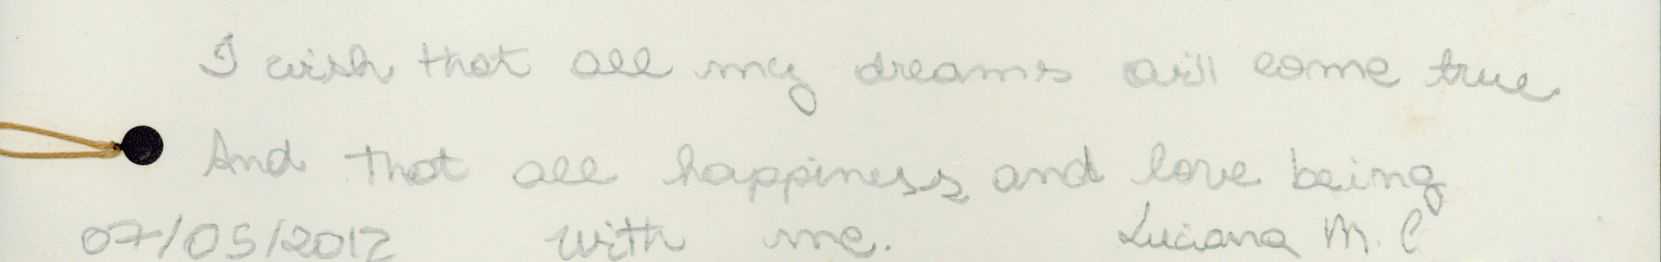 I wish that all my dreams will come true
And that all happiness and love being
07/05/2012 with me. Luciana M. C